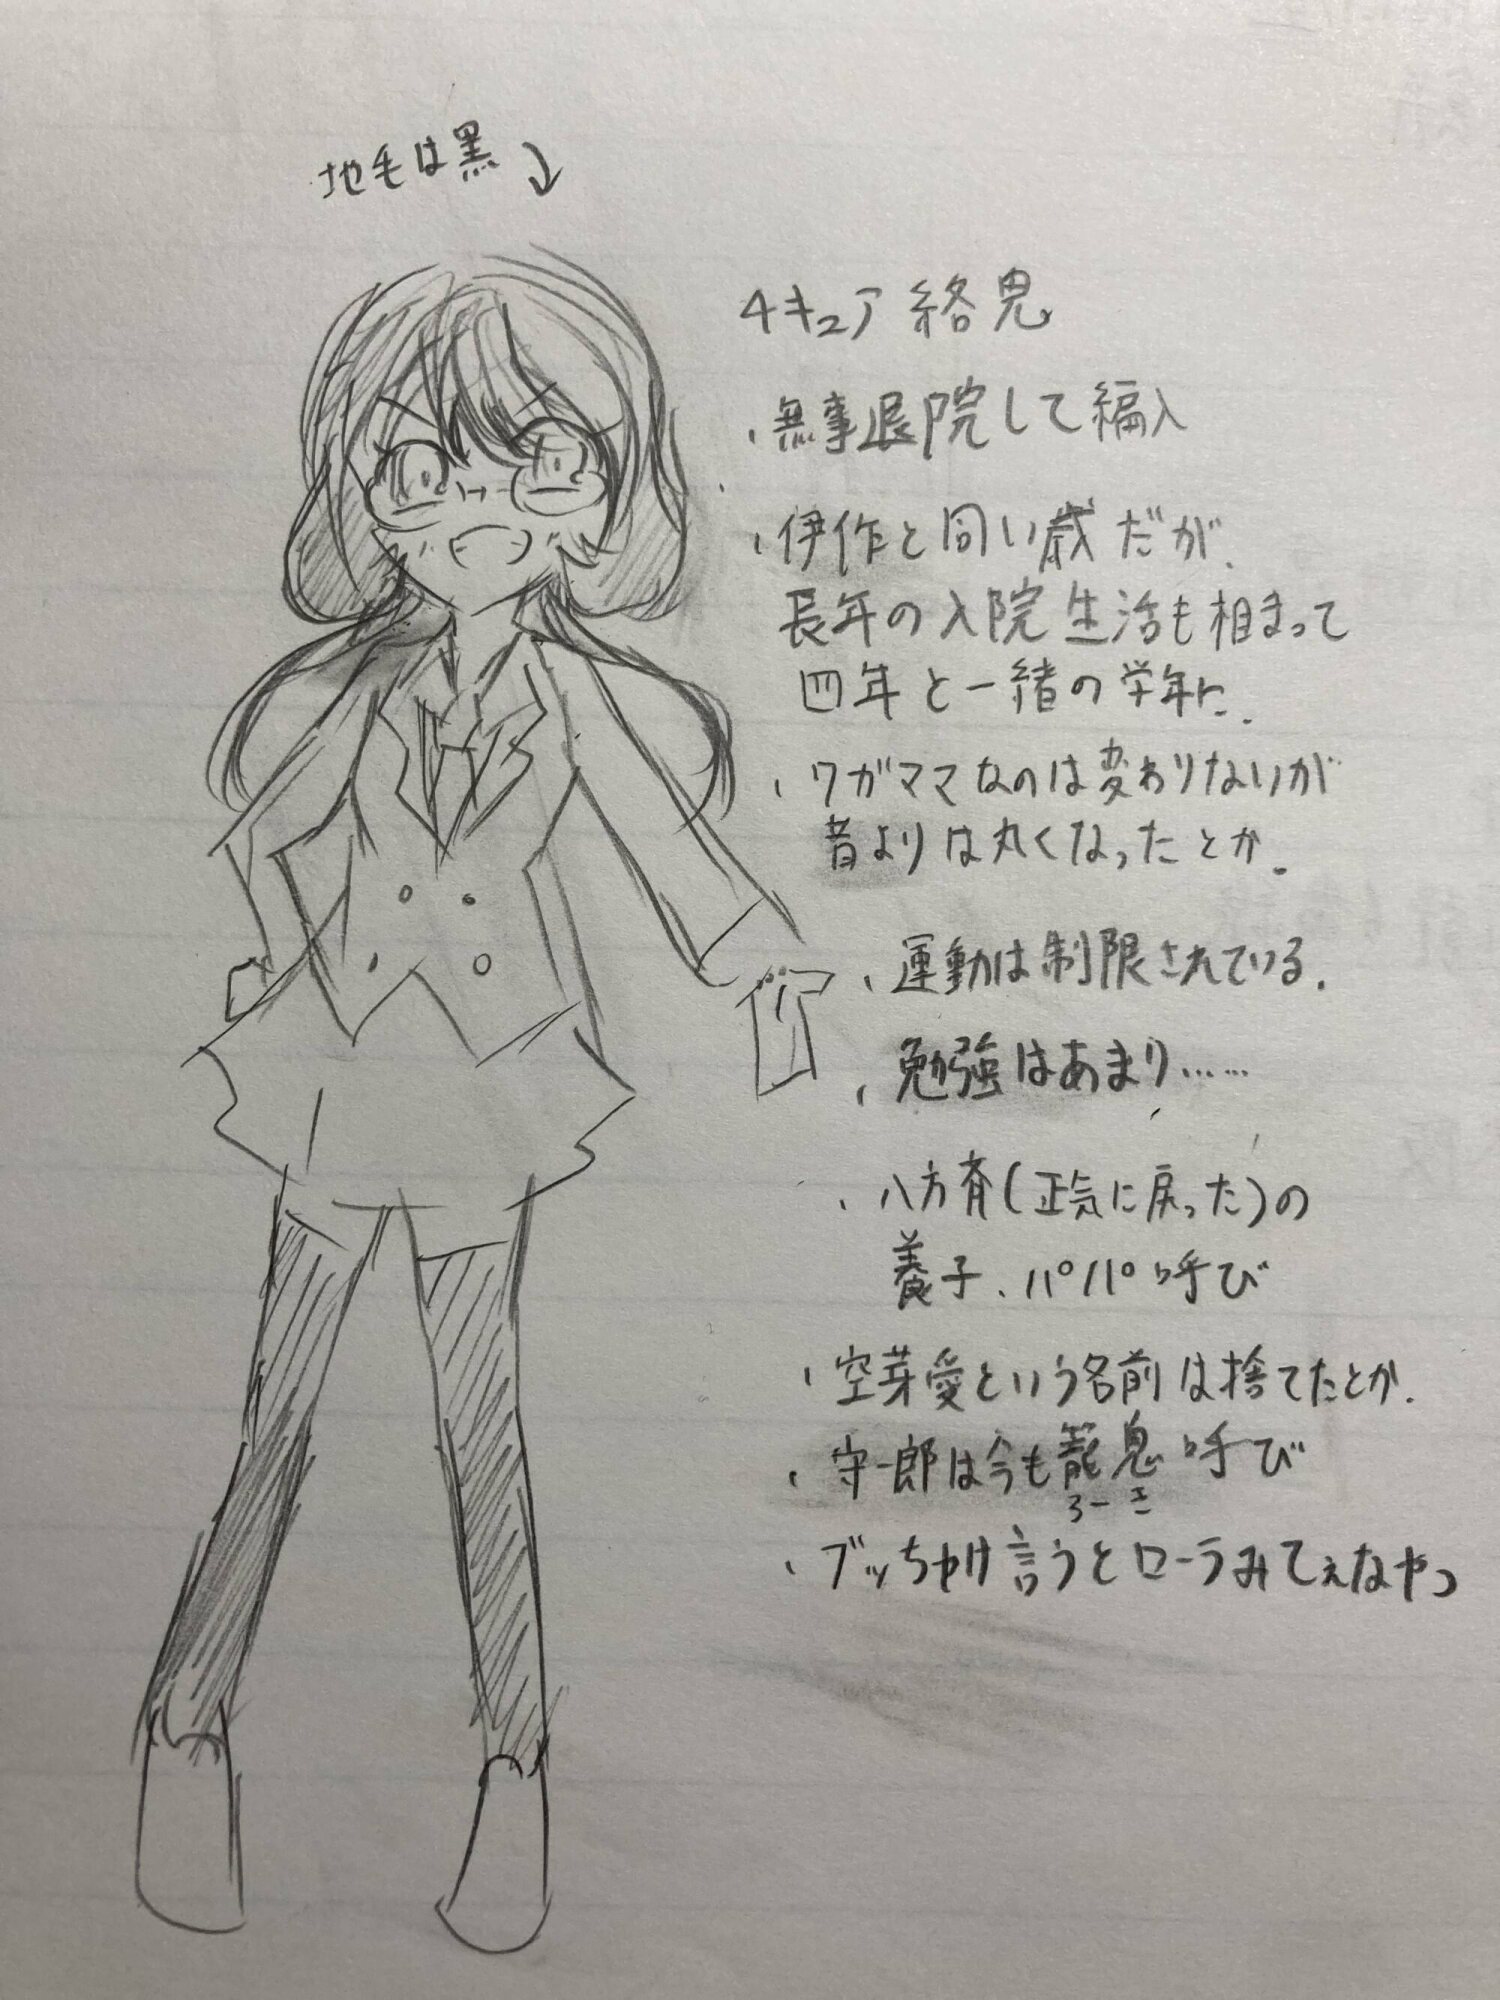 地毛は黒
4キュア絡鬼
・無事退院して編入
・伊作と同い歳だが、
長年の入院生活も相まって
四年と一緒の学年に.
・ワガママなのは変わりないが
昔よりは丸くなったとか.
・運動は制限されている.
・勉強はあまり……
・八方斉(正気に戻った)の
養子、パパ呼び
・空芽愛という名前は捨てたとか.
・守一郎は今も篭鬼呼び
ろーき
・ブッちゃけ言うとローラみてぇなやつ